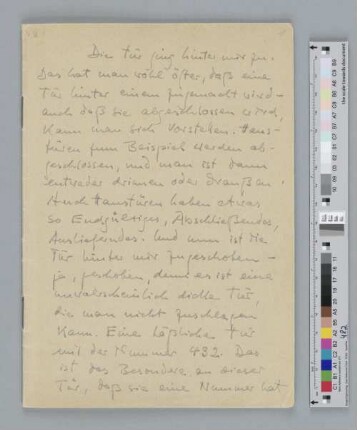 Die Tür ging hinter mir zu.
Das hat man wohl öfter, daß eine
Tür hinter einem zugemacht wird –
auch daß sie abgeschlossen wird,
kann man sich vorstellen. Haus-
türen zum Beispiel werden ab-
geschlossen, und man ist dann
entweder drinnen oder draußen.
Auch Haustüren haben etwas
so Endgültiges, Abschließendes,
Auslieferndes. Und nun ist die
Tür hinter mir zugeschoben –
ja, geschoben, denn es ist eine
unwahrscheinlich dicke Tür,
die man nicht zuschlagen
kann. Eine häßliche Tür
mit der Nummer 432. Das
ist das Besondere an dieser
Tür, daß sie eine Nummer hat